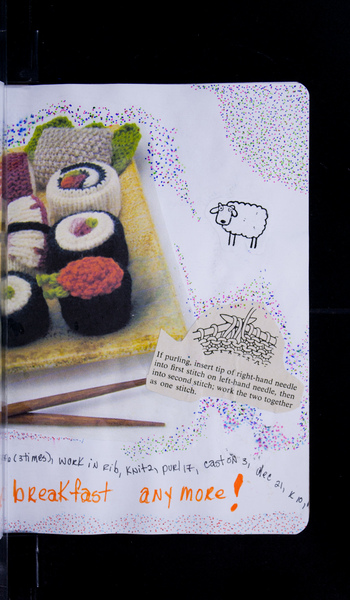 If purling, insert tip of right-hand needle
into first stitch on left-hand needle, then
into second stitch; work the two together
as one stitch.
(3times), work in Rib, Knit2, purl 17, cast on 3, dec 21, K 10,
breakfast any more!